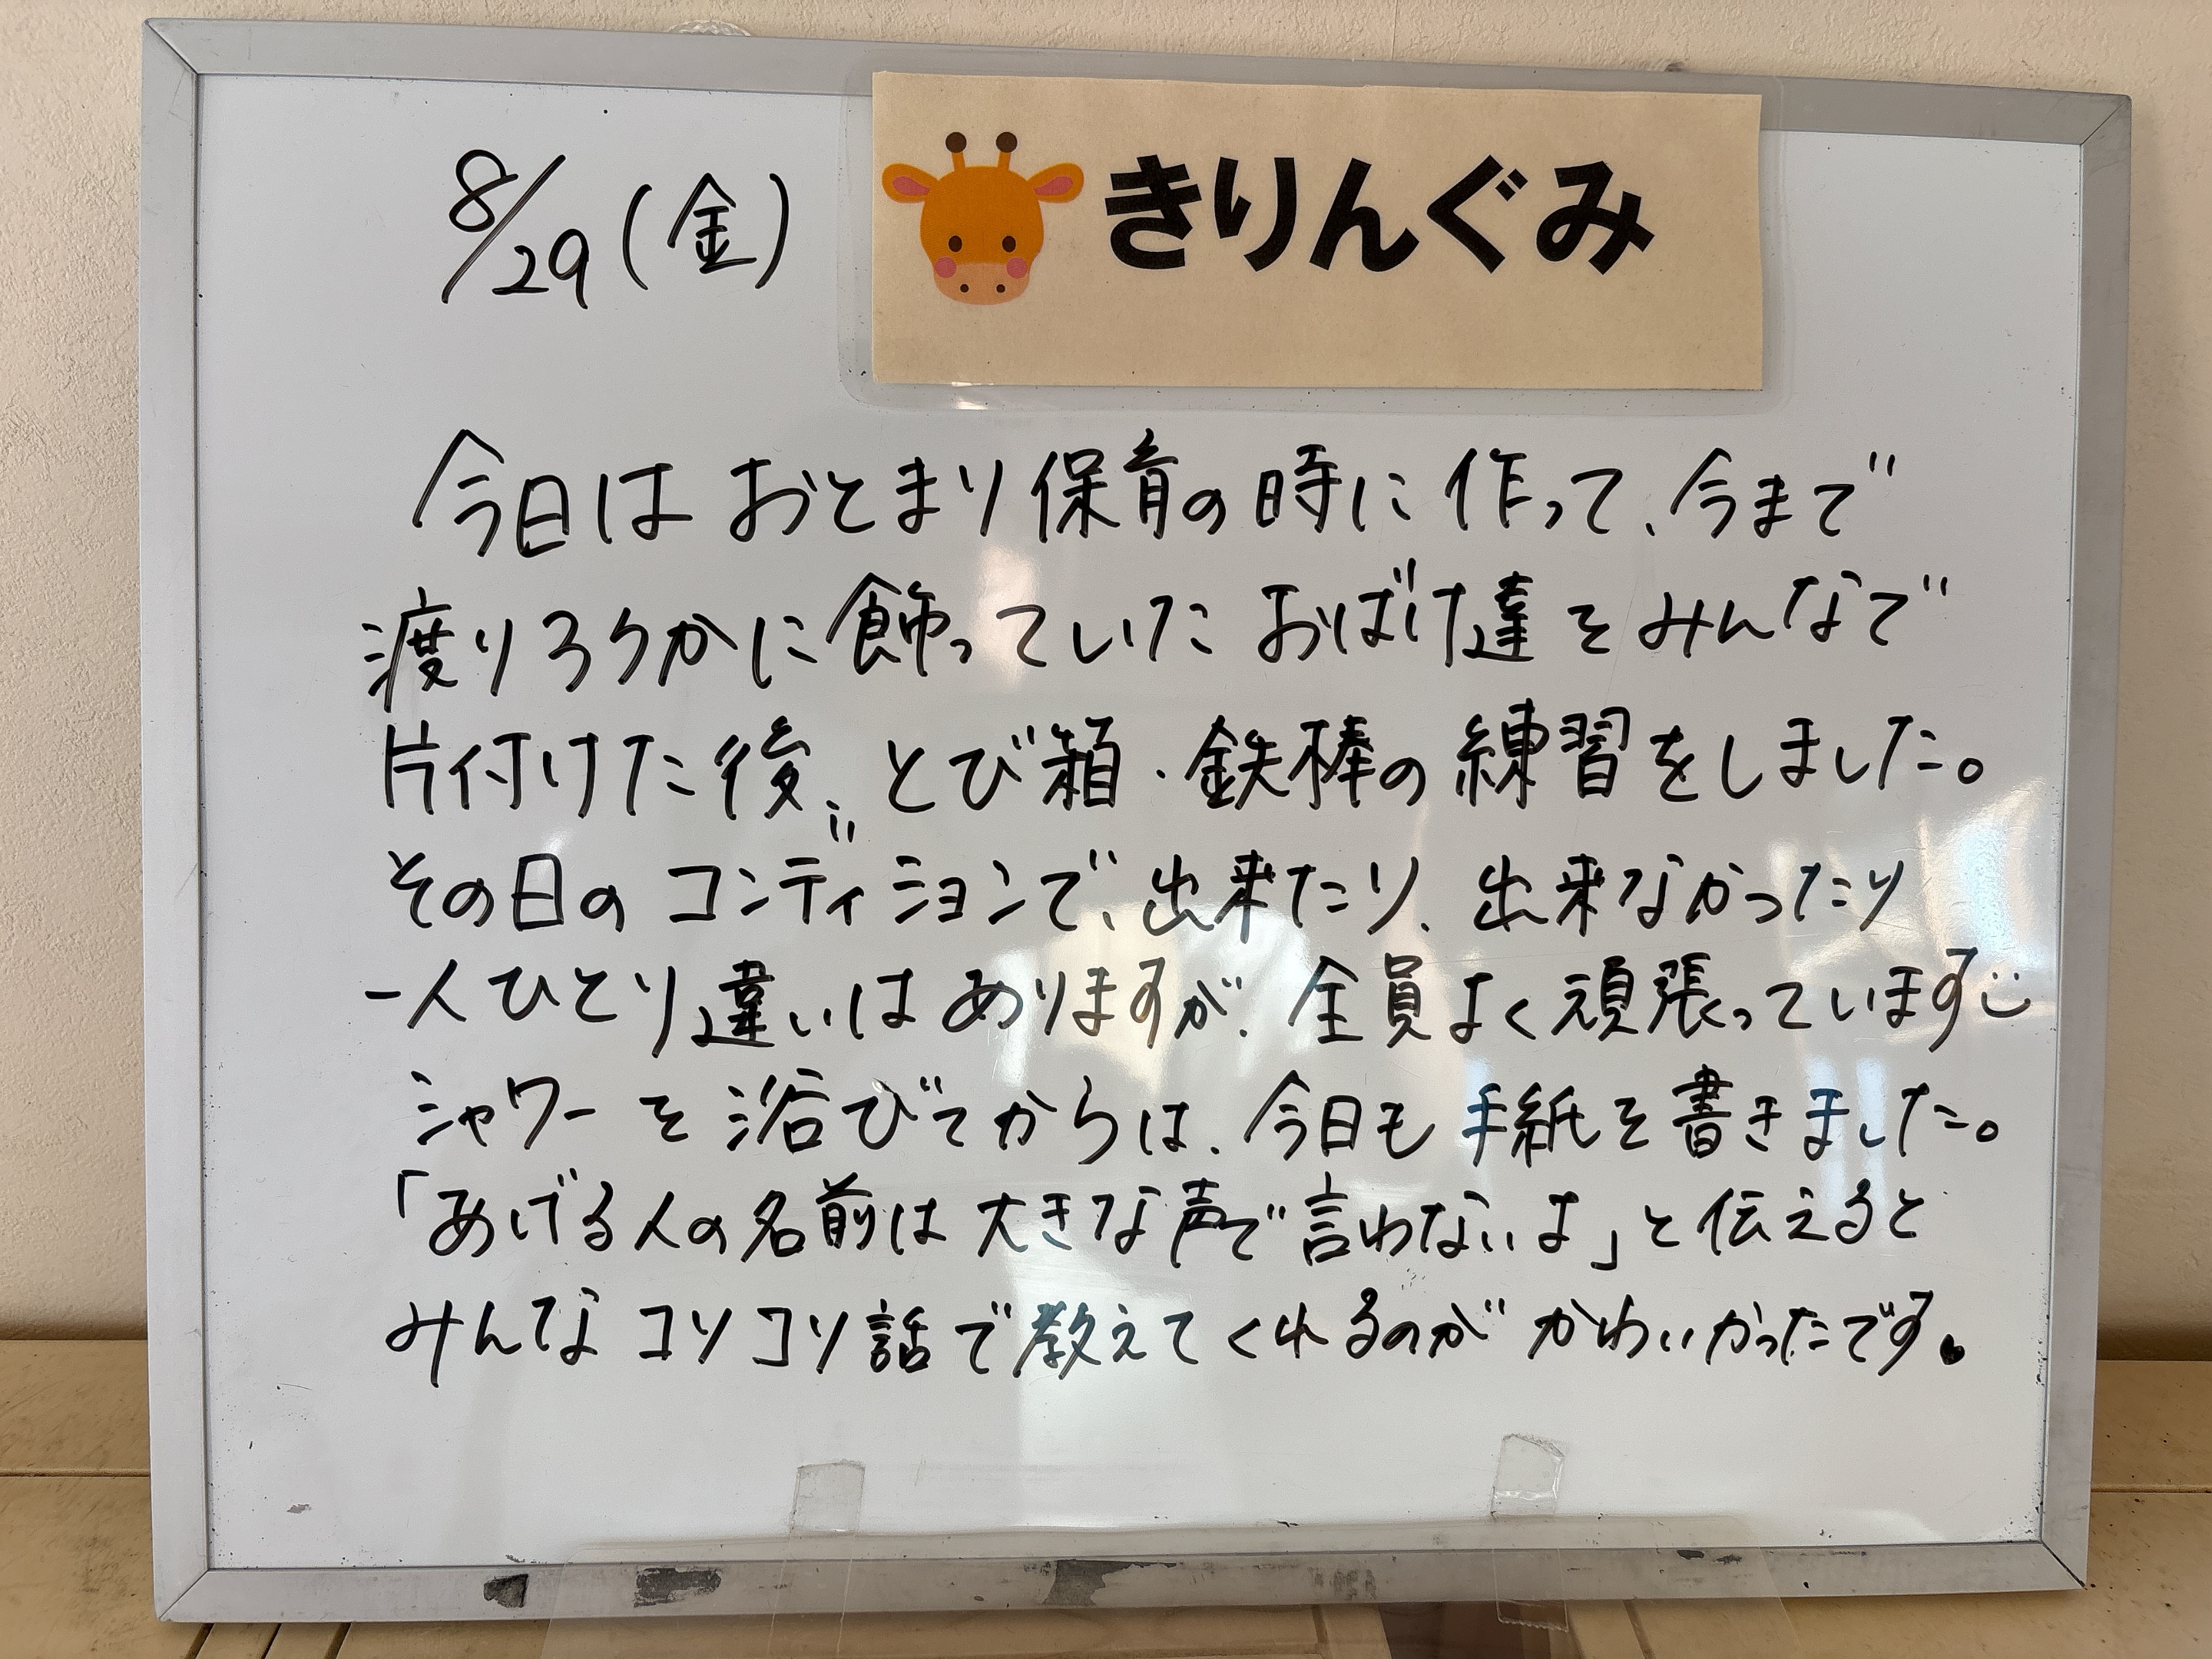 8/29(金)
きりんぐみ
今日はおとまり保育の時に作って、今まで
渡りろうかに飾っていたおばけ達をみんなで
片付けた後、とび箱・鉄棒の練習をしました。
その日のコンディションで、出来たり、出来なかったり
一人ひとり違いはありますが、全員よく頑張っています
シャワーを浴びてからは、今日も手紙を書きました。
「あげる人の名前は大きな声で言わないよ」と伝えると
みんなコソコソ話で教えてくれるのがかわいかったです。